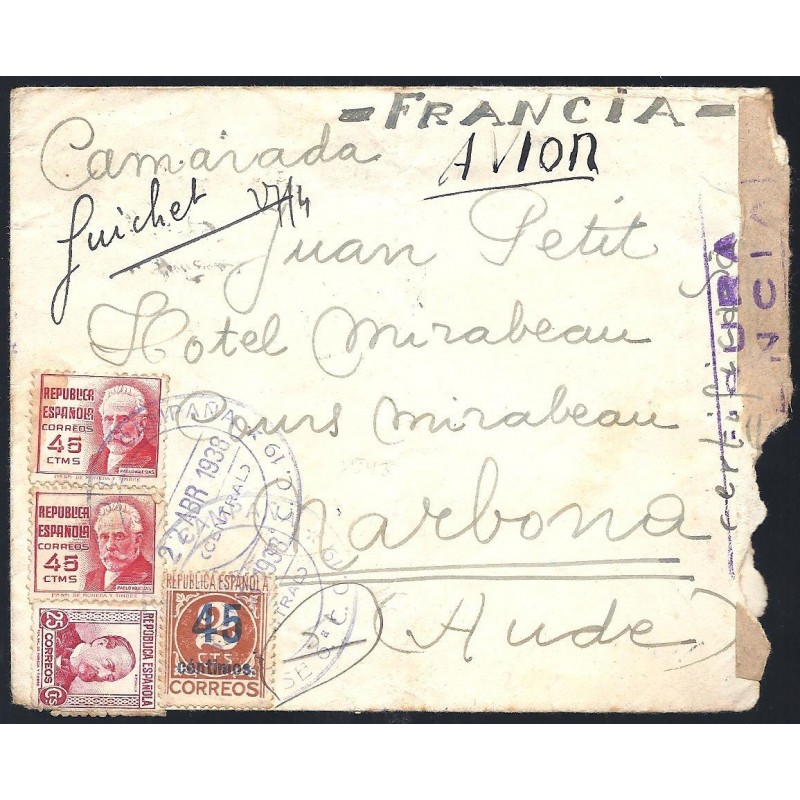 - FRANCIA -
AVION
Camarada
Guichet
Juan Petit
Hotel Mirabeau
Cours Mirabeau
Narbona
(Aude)
certificado
CENSURA
REPUBLICA
ESPAÑOLA
CORREOS
45
CTMS
PABLO IGLESIAS
REPUBLICA
ESPAÑOLA
CORREOS
45
CTMS
PABLO IGLESIAS
25
CORREOS
CTS
REPUBLICA ESPAÑOLA
REPUBLICA ESPAÑOLA
45
CTS
céntimos.
CORREOS
CAMPAÑA * C.C. 19
ABR 1938
(CENTRAL)
1938